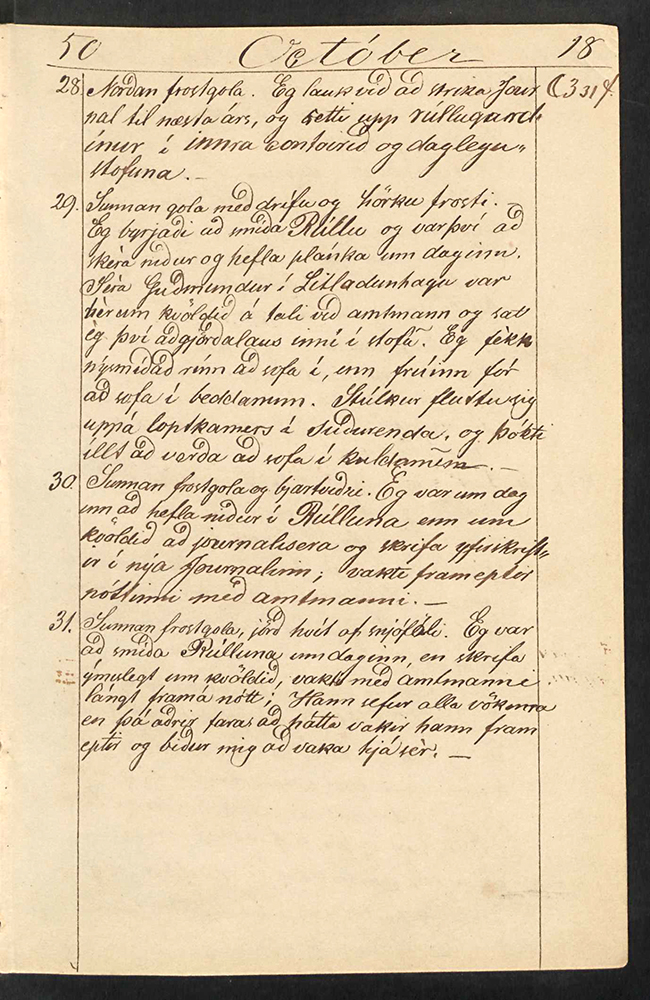 50 Octóber 18
28. Nordan frostgola. Eg lauk vid ad strika Jour
nal til næsta árs, og setti upp rúllugard
ínur í innra contoirid og daglegu„
stofuna. –
29. Sunnan gola med drífu og hörku frosti. –
Eg byrjadi ad smída Rúllu og var því ad
skèra nidur og hefla plánka um daginn.
Sèra Gudmundur í Litladunhaga var
hèr um kvöldid á tali vid amtmann og sat
èg því adgjördalaus inni í stofu. Eg fèkk
nýsmídad rúm ad sofa í, enn frúinn fór
ad sofa í beddanum. Stúlkur fluttu sig
uppá loptkamers í sudurenda, og þókti
illt ad verda ad sofa í kuldanum. –
30. Sunnan frostgola og bjartvidri. Eg var um dag
inn ad hefla nidur í Rúlluna enn um
kvöldid ad journalisera og skrifa yfirskrift„
ir í nýa Journalinn; vakti frameptir
nóttinni med amtmanni. –
31. Sunnan frostgola, jörd hvít af snjófáli. Eg var
ad smída Rúlluna um daginn, en skrifa
ýmulegt um kvöldid, vakti med amtmanni
lángt framá nótt; Hann sefur alla vökuna
en þá adrir fara ad hátta vakir hann fram
eptir og bidur mig ad vaka hjá sèr. –